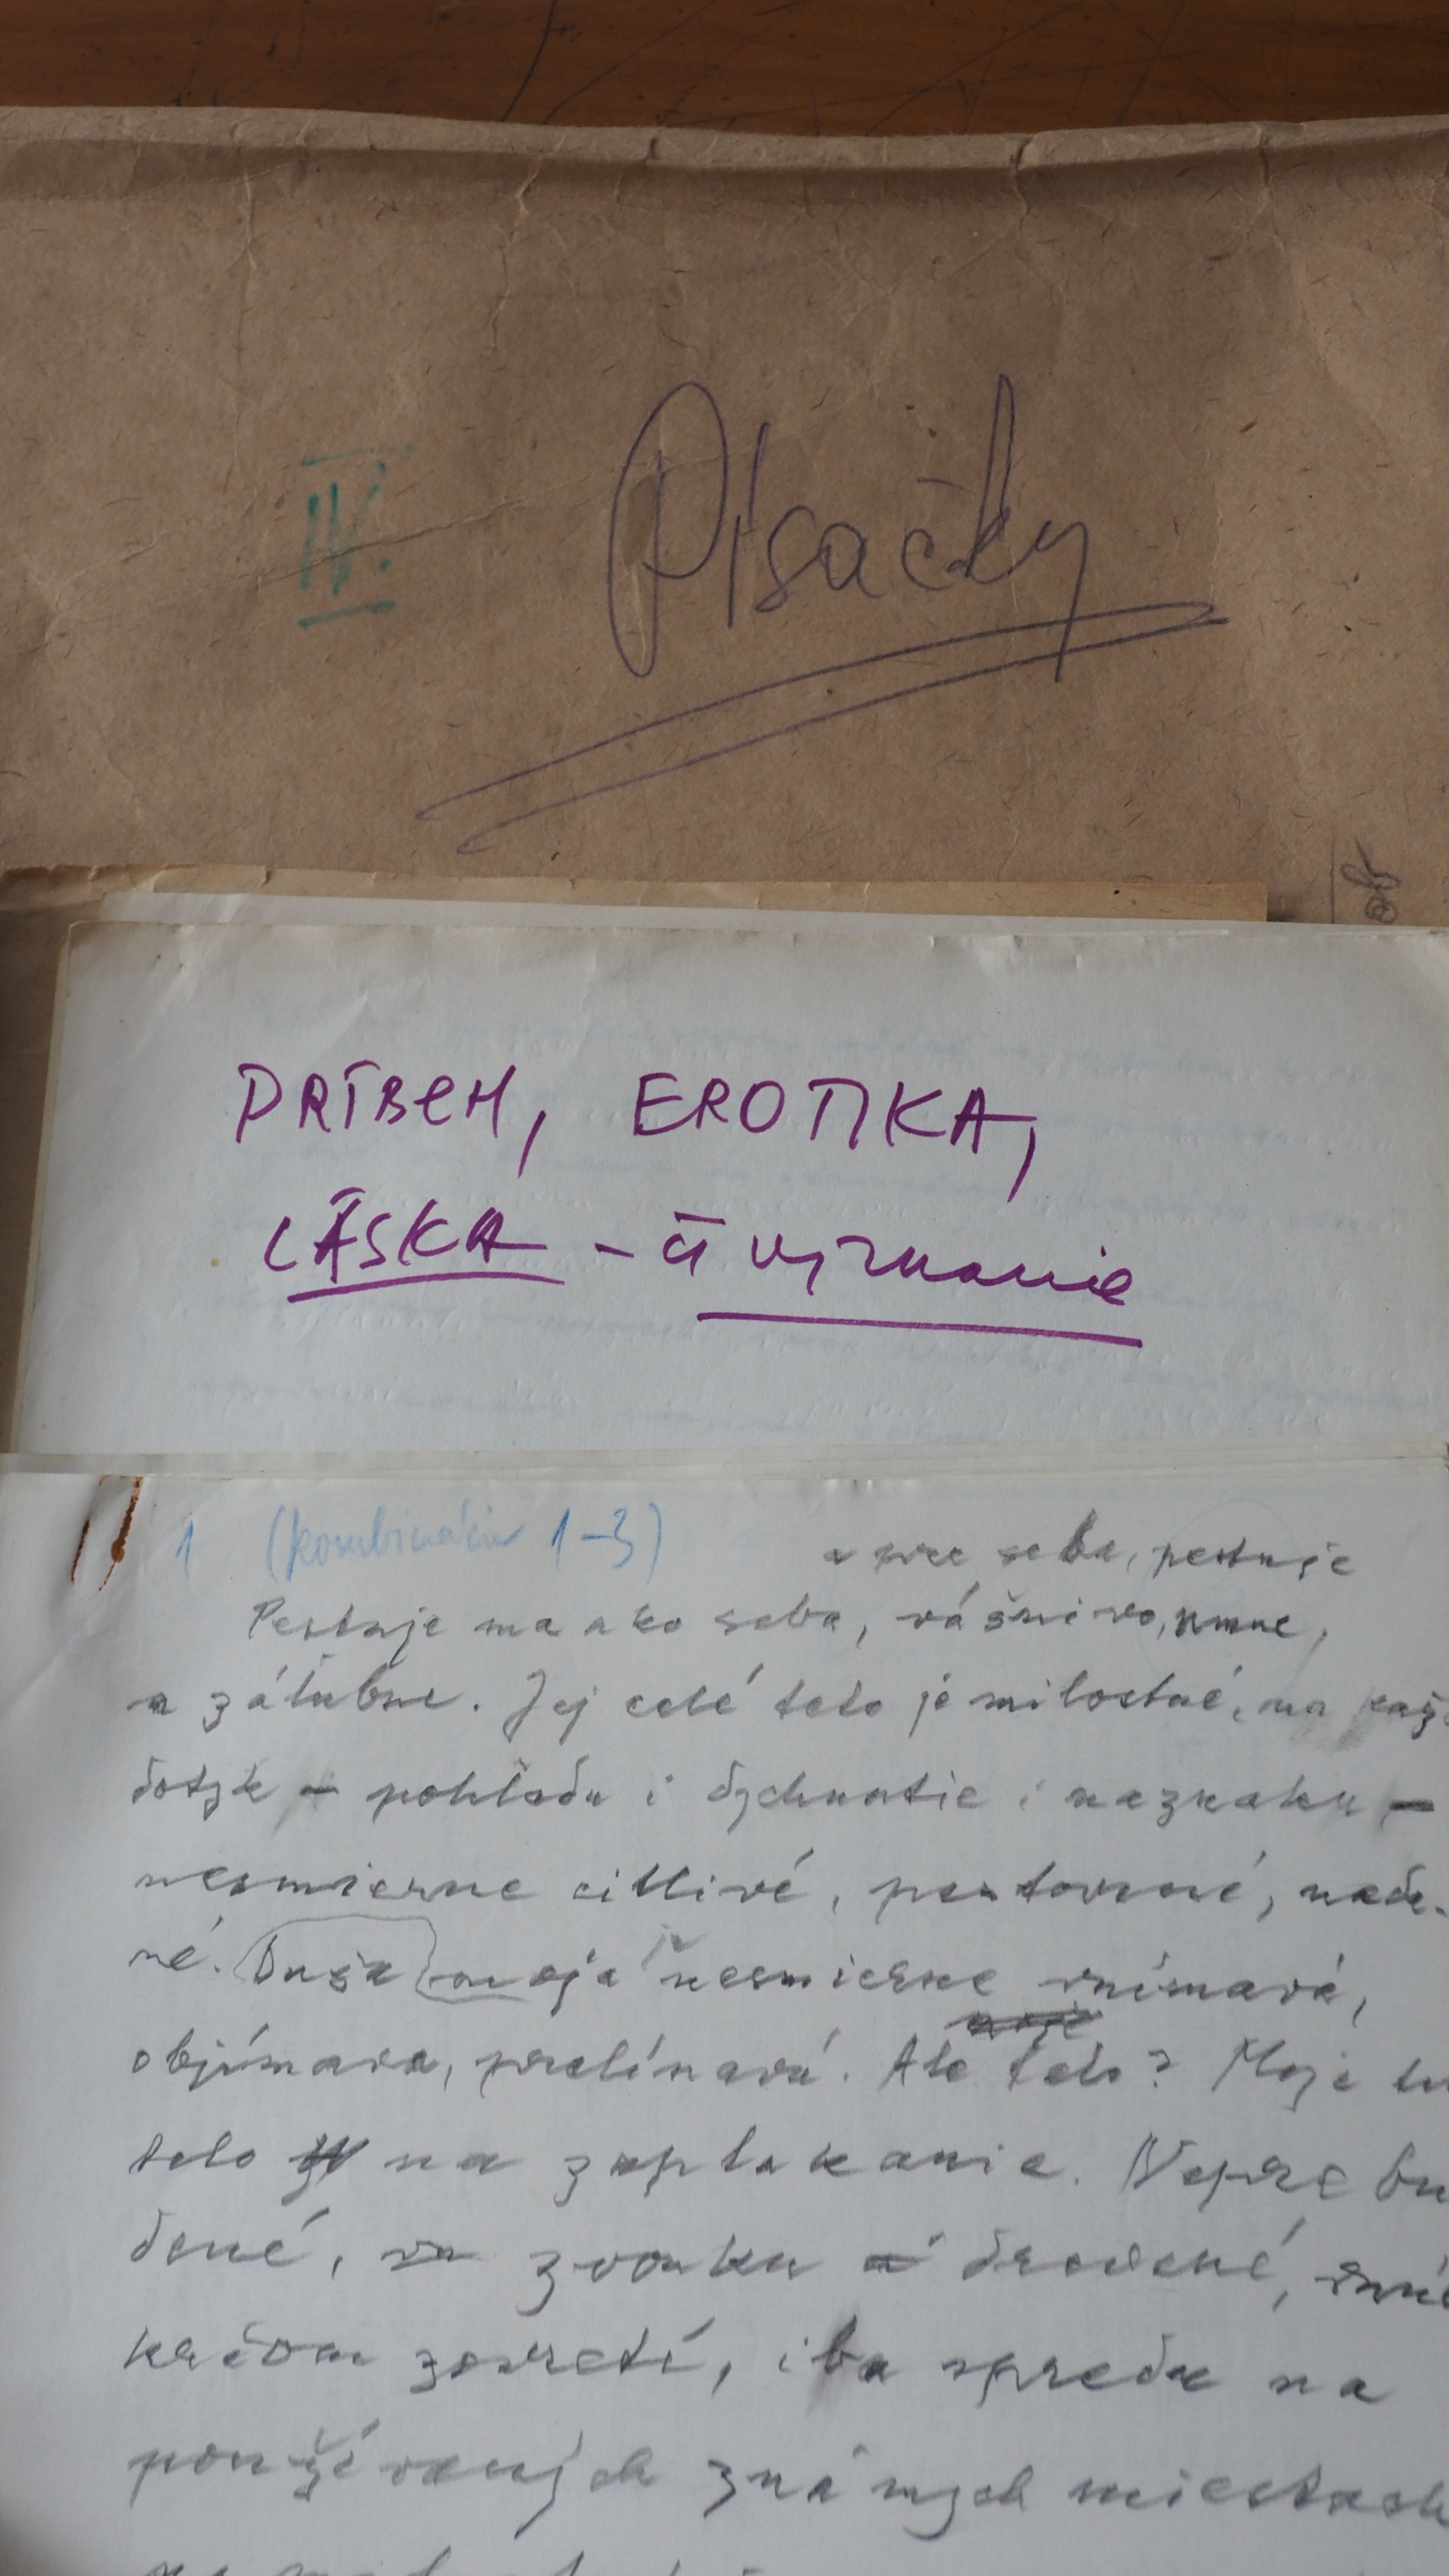 IV.
Písačky
PRÍBEH, EROTIKA,
LÁSKA - či vyznanie
1 (kombinácia 1-3)
a pre seba, pestuje
Pestuje ma ako seba, vášnivo, umne,
a záľubne. Jej celé telo je milostné, na
dotyk - pohľadu i dýchnutie i naznaku -
nesmierne citlivé, pestované,
né. Duša moja je nesmierne vnímavá,
objímava, prelínavá. Ale telo? Moje
telo na zaplakanie. Neprebu
dené, zvonku drevené,
kŕčom zovreté, iba vpredu na
používaných známych miestach